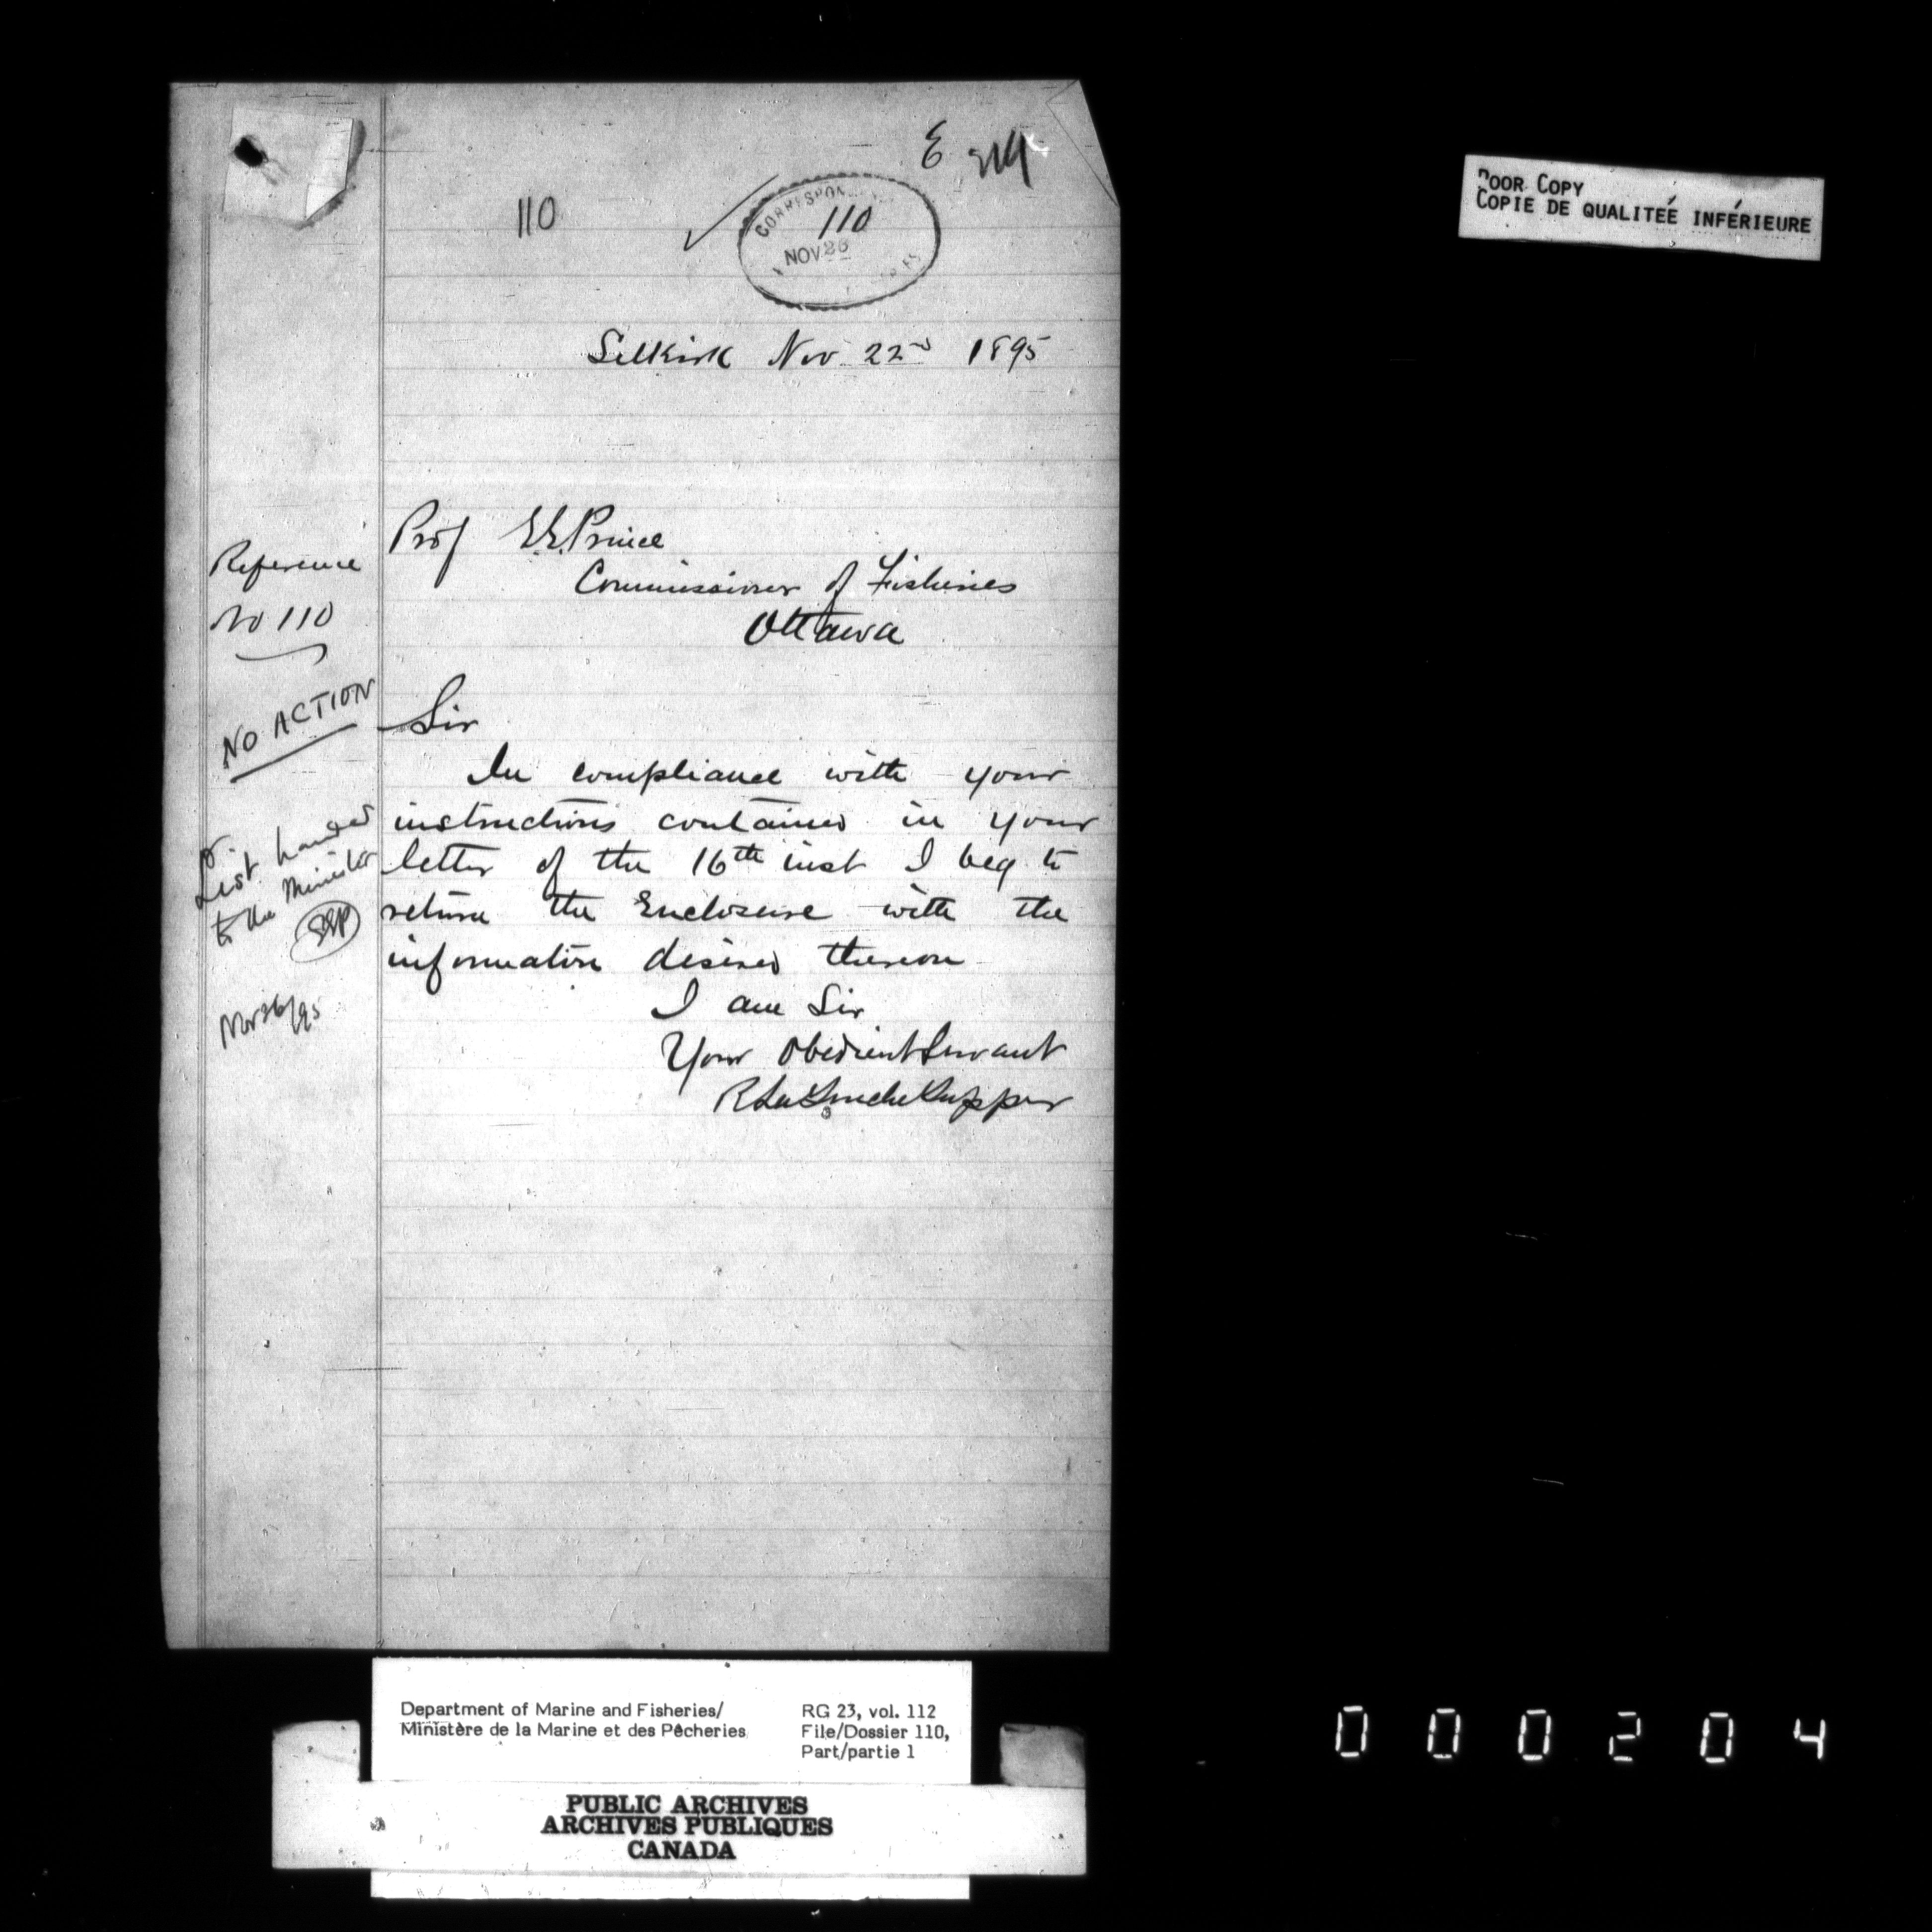 E
110
CORRESPON
110
NOV 26
Selkirk Nov 22nd 1895
Prof E.E. Prince
Commissioner of Fisheries
Ottawa
Reference
No 110
NO ACTION
List handed
to the Minister
EEP
Nov 26/95
Sir
In compliance with your
instructions contained in your
letter of the 16th inst I beg to
return the Enclosure with the
information desired thereon
I am Sir
Your Obedient Servant
R LaTouche Tupper
POOR COPY
COPIE DE QUALITEÉ INFÉRIEURE
Department of Marine and Fisheries/
Ministère de la Marine et des Pêcheries
RG 23, vol. 112
File/Dossier 110,
Part/partie 1
PUBLIC ARCHIVES
ARCHIVES PUBLIQUES
CANADA
000204